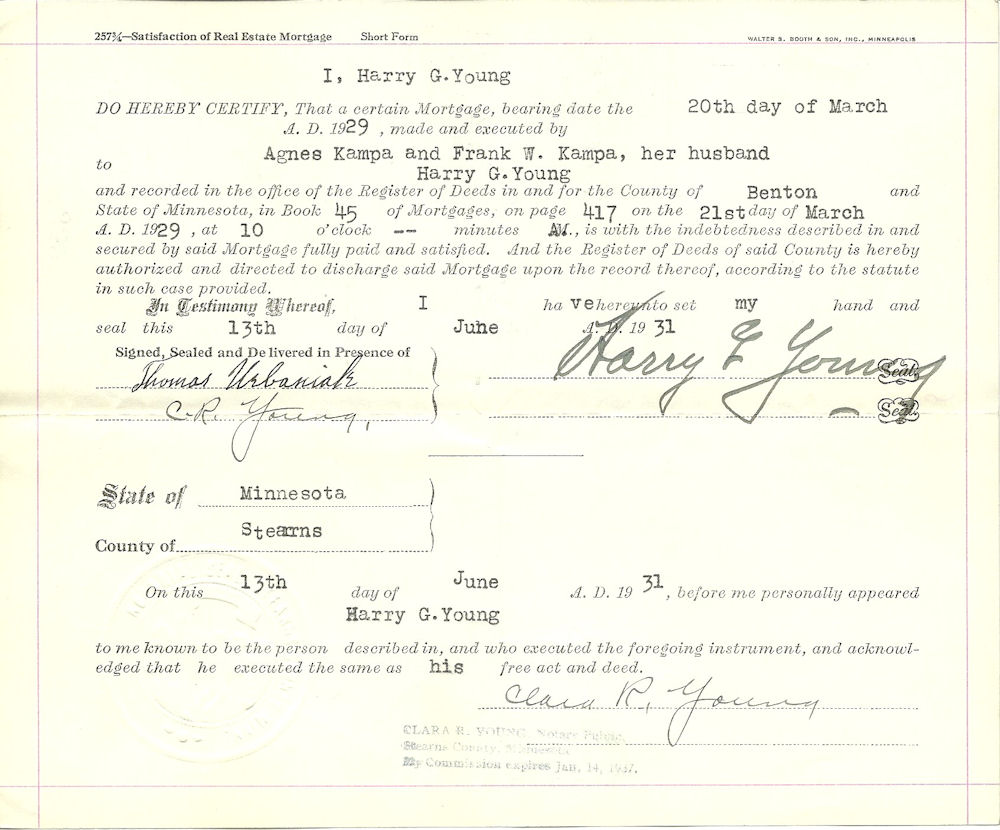 257¾—Satisfaction of Real Estate Mortgage Short Form WALTER S. BOOTH & SON, INC., MINNEAPOLIS
I, Harry G.Young
DO HEREBY CERTIFY, That a certain Mortgage, bearing date the 20th day of March
A. D. 1929 , made and executed by
Agnes Kampa and Frank W. Kampa, her husband
to Harry G.Young
and recorded in the office of the Register of Deeds in and for the County of Benton and
State of Minnesota, in Book 45 of Mortgages, on page 417 on the 21st day of March
A. D. 1929 , at 10 o'clock -- minutes AM., is with the indebtedness described in and
secured by said Mortgage fully paid and satisfied. And the Register of Deeds of said County is hereby
authorized and directed to discharge said Mortgage upon the record thereof, according to the statute
in such case provided.
In Testimony Whereof, I ha ve hereunto set my hand and
seal this 13th day of June A. D. 19 31
Signed, Sealed and Delivered in Presence of
Thomas Urbaniak Harry G Young Seal.
C.R. Young, Seal.
State of Minnesota
County of Stearns
On this 13th day of June A. D. 19 31 , before me personally appeared
Harry G.Young
to me known to be the person described in, and who executed the foregoing instrument, and acknowl-
edged that he executed the same as his free act and deed.
Clara R. Young
CLARA R. YOUNG Notary Public,
Stearns County, Minnesota
My Commission expires Jan. 14, 1937.